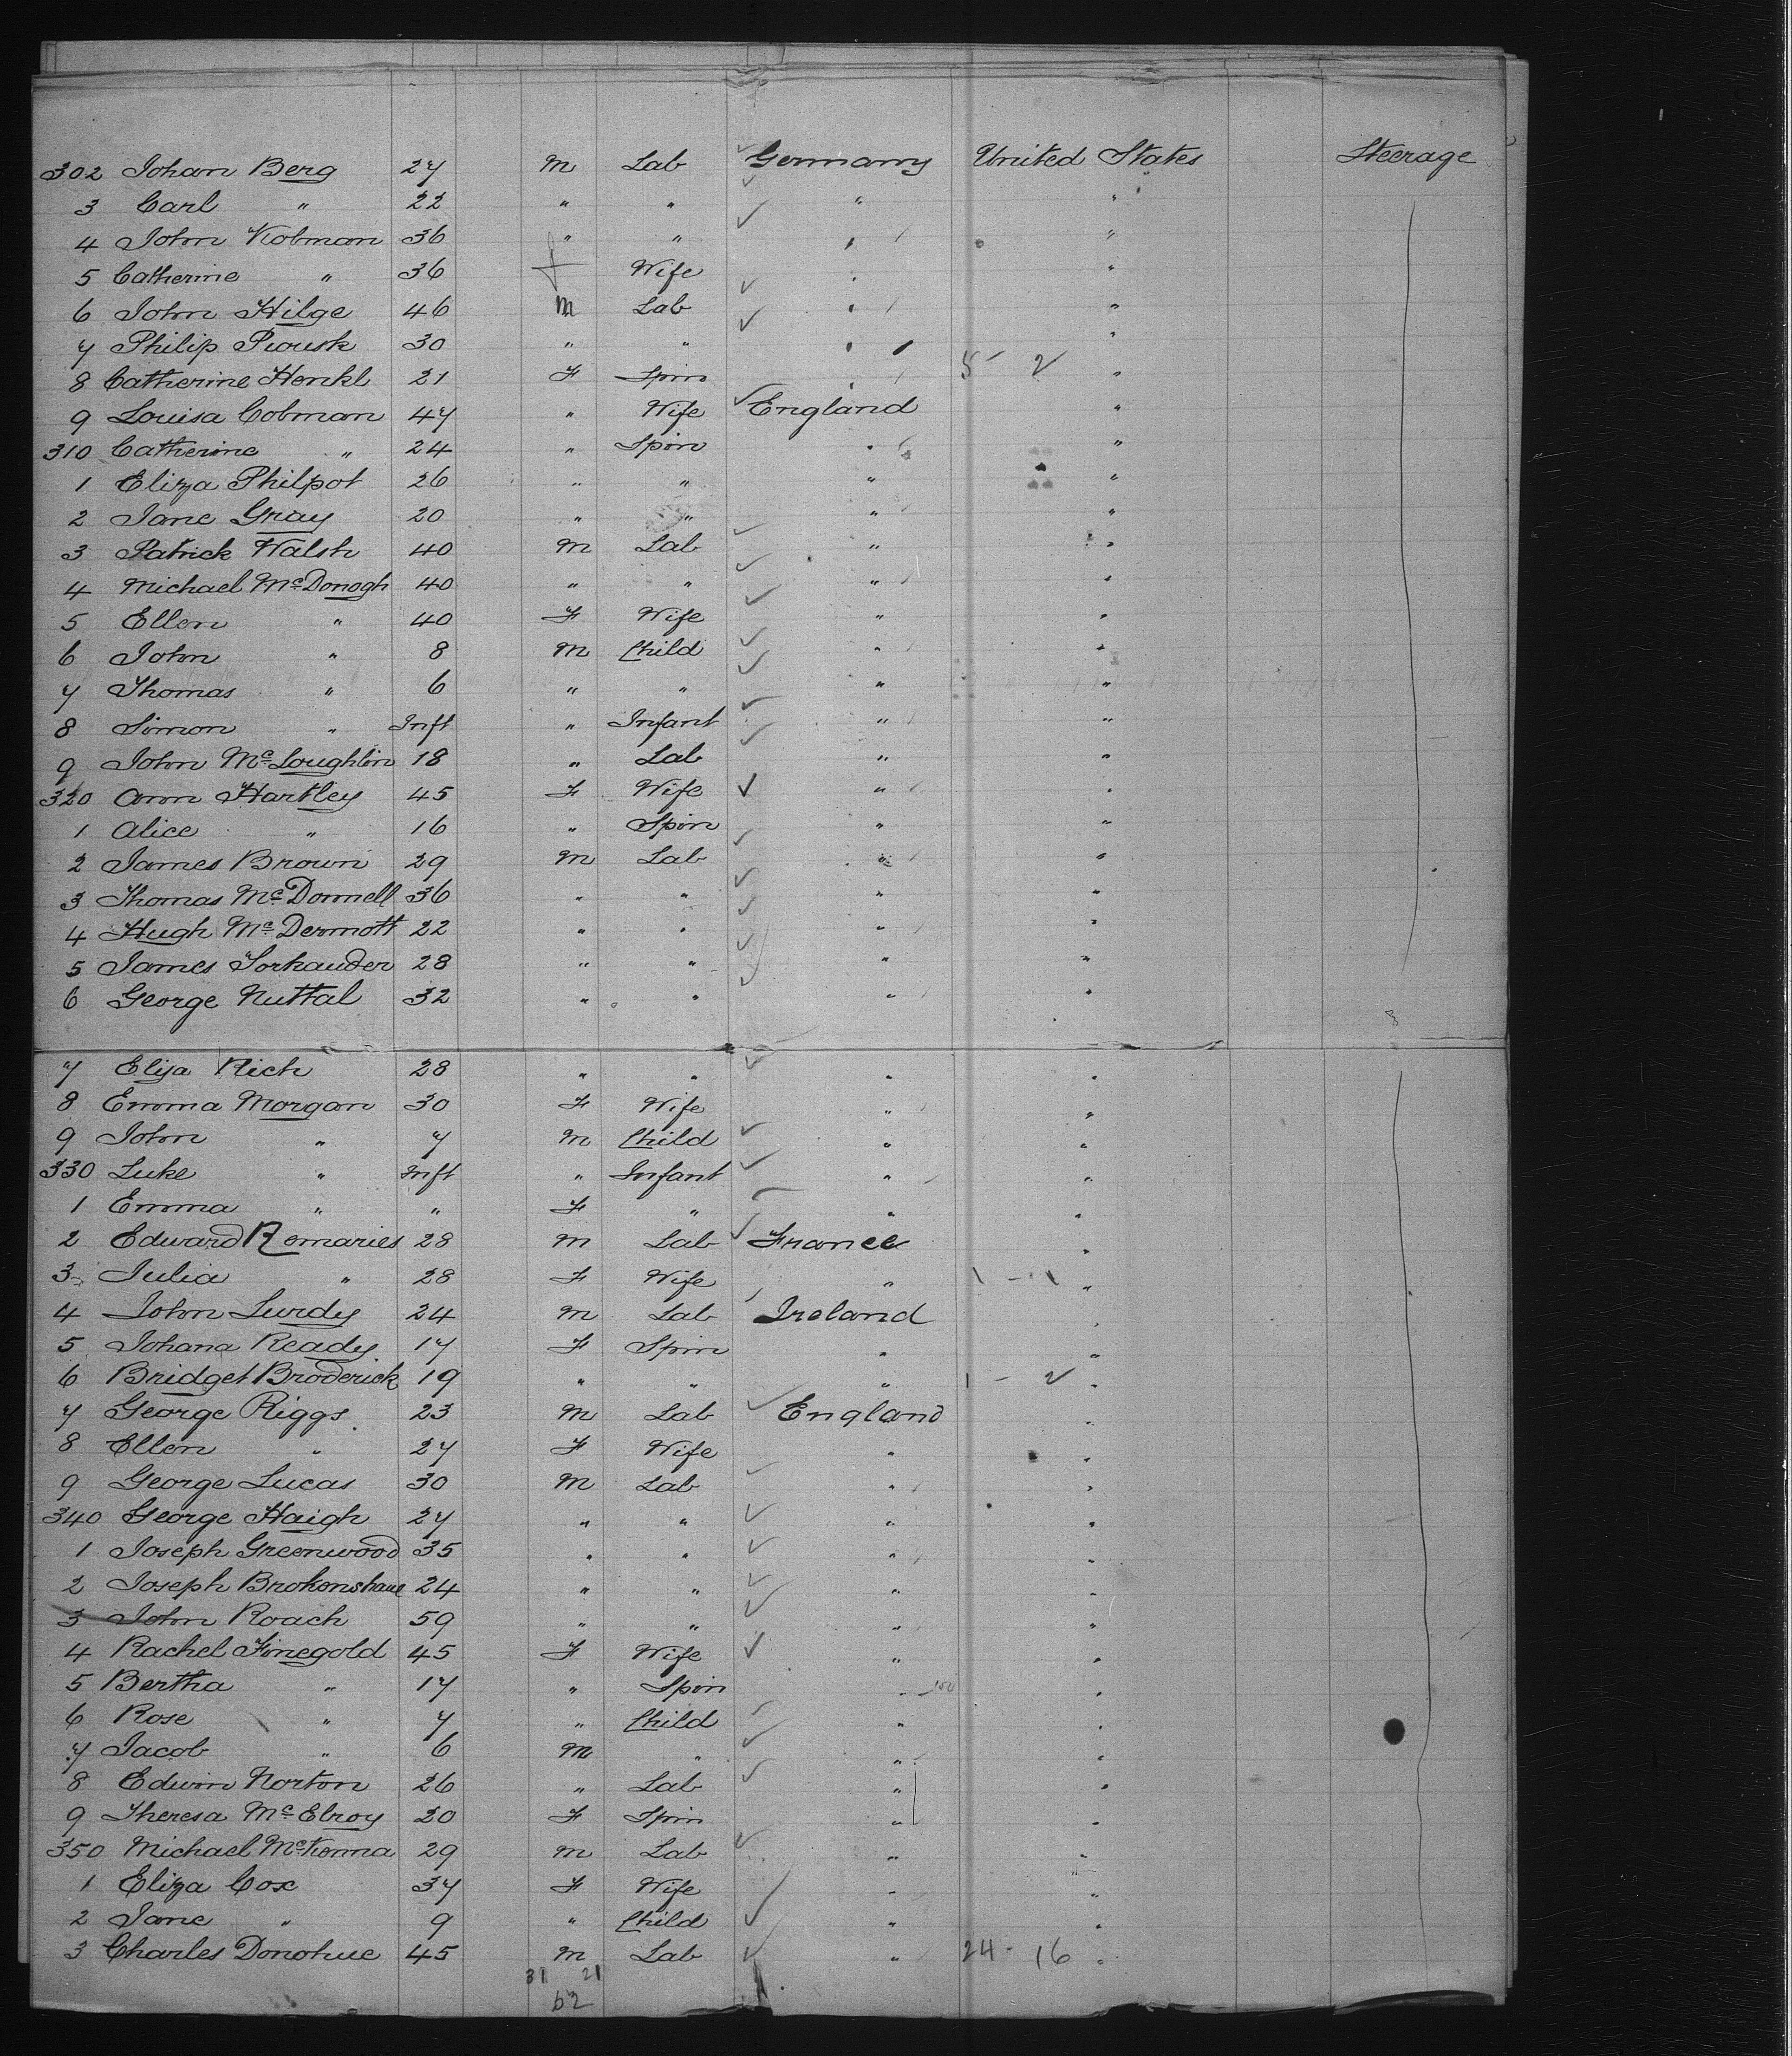 302 Johan Berg 27 M Lab Germany United States Steerage
3 Carl " 22 " " " "
4 John Kobman 36 " " " "
5 Catherine " 36 f Wife " "
6 John Hilge 46 M Lab " "
7 Philip 30 " " " "
8 Catherine Henkl 21 F Spin " 5 - 2 "
9 Louisa Cobman 47 " Wife England "
310 Catherine " 24 " Spin " "
1 Eliza Philpot 26 " " " "
2 Jane Gray 20 " " " "
3 Patrick Walsh 40 M Lab " "
4 Michael McDonogh 40 " " " "
5 Ellen " 40 F Wife " "
6 John " 8 M Child " "
7 Thomas " 6 " " " "
8 Simon " Inft " Infant " "
9 John McLoughlin 18 " Lab " "
320 Ann Hartley 45 F Wife " "
1 Alice " 16 " Spin " "
2 James Brown 29 M Lab " "
3 Thomas McDonnell 36 " " " "
4 Hugh McDermott 22 " " " "
5 James 28 " " " "
6 George Nuttal 32 " " " "
7 Elija Rich 28 " " " "
8 Emma Morgan 30 F Wife " "
9 John " 7 M Child " "
330 Luke " Inft " Infant " "
1 Emma " " F " " "
2 Edward Romaries 28 M Lab France "
3 Julia " 28 F Wife " 1 - 1 "
4 John Lurdy 24 M Lab Ireland "
5 Johana Ready 17 F Spin " "
6 Bridget Broderick 19 " " " 1 - 2 "
7 George Riggs 23 M Lab England "
8 Ellen " 27 F Wife " "
9 George Lucas 30 M Lab " "
340 George Haigh 27 " " " "
1 Joseph Greenwood 35 " " " "
2 Joseph Brokenshaue 24 " " " "
3 John Roach 59 " " " "
4 Rachel Finegold 45 F Wife " "
5 Bertha " 17 " Spin " "
6 Rose " 7 " Child " "
7 Jacob " 6 M " " "
8 Edwin Norton 26 " Lab " "
9 Theresa McElroy 20 F Spin " "
350 Michael McKenna 29 M Lab " "
1 Eliza Cox 37 F Wife " "
2 Jane " 9 " Child " "
3 Charles Donohue 45 M Lab " 24 - 16 "
31 21
52